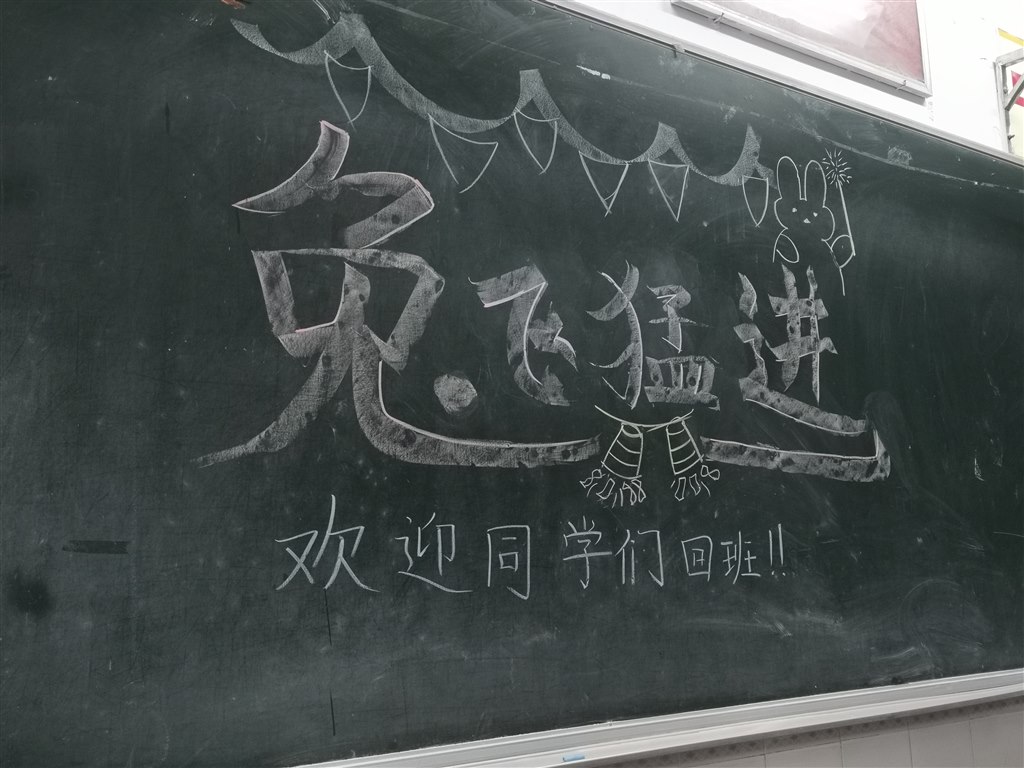 兔飞猛进
欢迎同学们回班!!